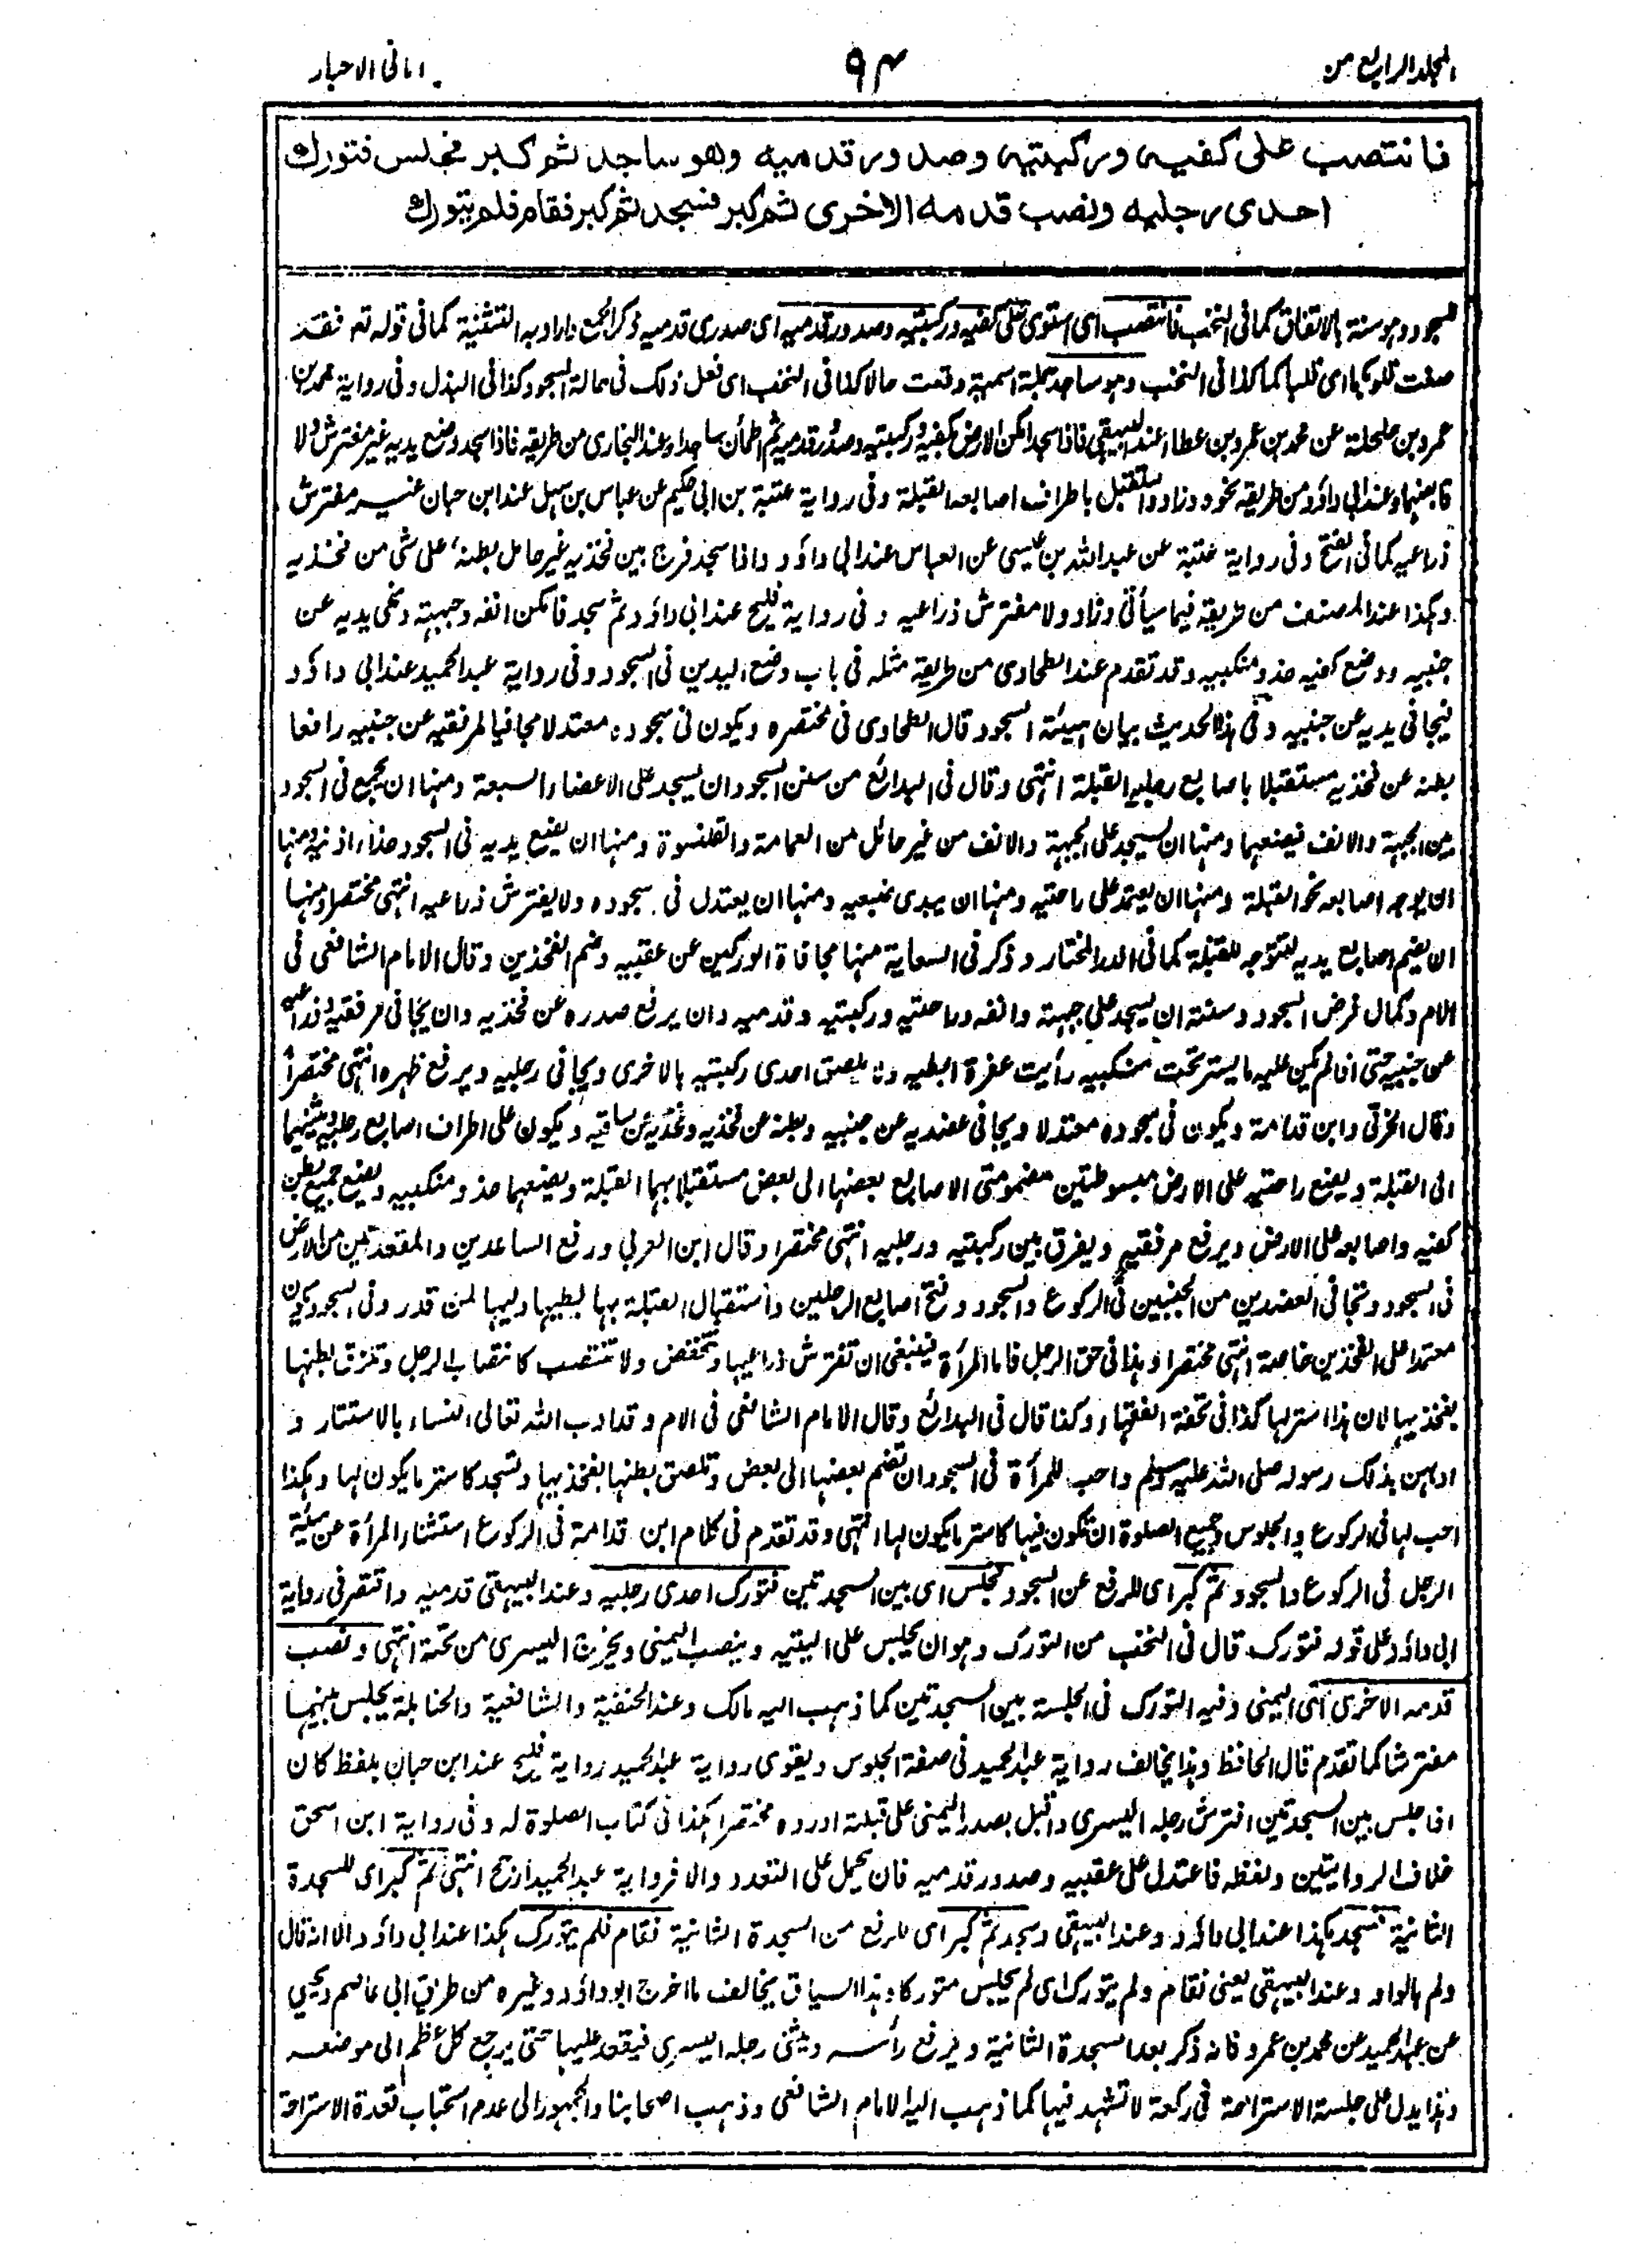 المجلد الرابع من
٩٤
امانى الاحبار
فانتصب على كفيه وركبتيه وصدور قدميه وهو ساجد ثم كبر فجلس فتورك
احدى رجليه ونصب قدمه الاخرى ثم كبر فسجد ثم كبر فقام فلم يتورك
للسجود وهو سنة بالاتفاق كما فى النخب فانتصب اى استوى على كفيه وركبتيه وصدور قدميه اى صدرى قدميه ذكر الجمع واراد به التثنية كما فى قوله تع فقد
صغت قلوبكما اى قلباكما كذا فى النخب وهو ساجد جملة اسمية وقعت حالا كذا فى النخب اى فعل ذلك فى حالة السجود كذا فى البذل وفى رواية محمد بن
عمرو بن حلحلة عن محمد بن عمرو بن عطاء عند البيهقى فاذا سجد امكن الارض بكفيه وركبتيه وصدور قدميه ثم اطمأن ساجدا وعند البخارى من طريقه فاذا سجد وضع يديه غير مفترش ولا
قابضهما وعند ابى داؤد من طريقه نحوه وزاد واستقبل باطراف اصابعه القبلة وفى رواية عتبة بن ابى حكيم عن عباس بن سهل عند ابن حبان غير مفترش
ذراعيه كما فى الفتح وفى رواية عتبة عن عبد الله بن عيسى عن العباس عند ابى داؤد واذا سجد فرج بين فخذيه غير حامل بطنه على شئ من فخذيه
وهكذا عند المصنف من طريقه فيما سيأتى وزاد ولا مفترش ذراعيه وفى رواية فليح عند ابى داؤد ثم سجد فامكن انفه وجبهته ونحى يديه عن
جنبيه ووضع كفيه حذو منكبيه وقد تقدم عند الطحاوى من طريقه مثله فى باب وضع اليدين فى السجود وفى رواية عبد الحميد عند ابى داؤد
فيجافى يديه عن جنبيه وفى هذا الحديث بيان هيئة السجود قال الطحاوى فى مختصره ويكون فى سجوده معتدلا مجافيا لمرفقيه عن جنبيه رافعا
بطنه عن فخذيه مستقبلا باصابع رجليه القبلة انتهى وقال فى البدائع من سنن السجود ان يسجد على الاعضاء السبعة ومنها ان يجمع فى السجود
بين الجبهة والانف فيضعهما ومنها ان يسجد على الجبهة والانف من غير حائل من العمامة والقلنسوة ومنها ان يضع يديه فى السجود حذاء اذنيه ومنها
ان يوجه اصابعه نحو القبلة ومنها ان يعتمد على راحتيه ومنها ان يبدى ضبعيه ومنها ان يعتدل فى سجوده ولا يفترش ذراعيه انتهى مختصرا ومنها
ان يضم اصابع يديه لتتوجه للقبلة كما فى الدر المختار وذكر فى السعاية منها مجافاة الوركين عن عقبيه وضم الفخذين وقال الامام الشافعى فى
الام وكمال فرض السجود وسنته ان يسجد على جبهته وانفه وراحتيه وركبتيه وقدميه وان يرفع صدره عن فخذيه وان يجافى مرفقيه وذراعيه
عن جنبيه حتى اذا لم يكن عليه ما يستر تحت منكبيه رأيت عفرة ابطيه ولا يلصق احدى ركبتيه بالاخرى ويجافى رجليه ويرفع ظهره انتهى مختصرا
وقال الخرقى وابن قدامة ويكون فى سجوده معتدلا ويجافى عضديه عن جنبيه وبطنه عن فخذيه وفخذيه عن ساقيه ويكون على اطراف اصابع رجليه ويثنيهما
الى القبلة ويضع راحتيه على الارض مبسوطتين مضمومتى الاصابع بعضها الى بعض مستقبلا بهما القبلة ويضعهما حذو منكبيه ويضع جميع بطن
كفيه واصابعه على الارض ويرفع مرفقيه ويفرق بين ركبتيه ورجليه انتهى مختصرا وقال ابن العربى ورفع الساعدين والمقعدتين من الارض
فى السجود وتجافى العضدين من الجنبين فى الركوع والسجود وفتح اصابع الرجلين واستقبال القبلة بها لبطيهما وليهما لمن قدر وفى السجود يكون
معتمدا على الفخذين خاصة انتهى مختصرا وهذا فى حق الرجل فاما المرأة فينبغى ان تفترش ذراعيها وتنخفض ولا تنتصب كانتصاب الرجل وتلزق بطنها
بفخذيها لان هذا استر لها كذا فى تحفة الفقهاء وكذا قال فى البدائع وقال الامام الشافعى فى الام وقد ادب الله تعالى النساء بالاستتار و
ادبهن بذلك رسوله صلى الله عليه وسلم واحب للمرأة فى السجود ان تضم بعضها الى بعض وتلصق بطنها بفخذيها وتسجد كاستر ما يكون لها وهكذا
احب لها فى الركوع والجلوس وجميع الصلوة ان تكون فيها كاستر ما يكون لها انتهى وقد تقدم فى كلام ابن قدامة فى الركوع استثناء المرأة عن هيئة
الرجل فى الركوع والسجود ثم كبر اى للرفع عن السجود فجلس اى بين السجدتين فتورك احدى رجليه وعند البيهقى قدميه واقتصر فى رواية
ابى داؤد على قوله فتورك قال فى النخب من التورك وهو ان يجلس على اليتيه وينصب اليمنى ويخرج اليسرى من تحته انتهى ونصب
قدمه الاخرى اى اليمنى وفيه التورك فى الجلسة بين السجدتين كما ذهب اليه مالك وعند الحنفية والشافعية والحنابلة يجلس بينهما
مفترشا كما تقدم قال الحافظ وهذا يخالف رواية عبد الحميد فى صفة الجلوس ويقوى رواية عبد الحميد رواية فليح عند ابن حبان بلفظ كان
اذا جلس بين السجدتين افترش رجله اليسرى واقبل بصدر اليمنى على قبلته اورده مختصرا هكذا فى كتاب الصلوة له وفى رواية ابن اسحق
خلاف الروايتين ولفظه فاعتدل على عقبيه وصدور قدميه فان يحمل على التعدد والا فرواية عبد الحميد ارجح انتهى ثم كبر اى للسجدة
الثانية فسجد هكذا عند ابى داؤد وعند البيهقى وسجد ثم كبر اى للرفع من السجدة الثانية فقام فلم يتورك هكذا عند ابى داؤد الا انه قال
ولم بالواو وعند البيهقى يعنى فقام ولم يتورك اى لم يجلس متوركا وهذا السياق يخالف ما اخرج ابو داؤد وغيره من طريق ابى عاصم ويحيى
عن عبد الحميد عن محمد بن عمرو فانه ذكر بعد السجدة الثانية ويرفع رأسه ويثنى رجله اليسرى فيقعد عليها حتى يرجع كل عظم الى موضعه
وهذا يدل على جلسة الاستراحة فى ركعة لا تشهد فيها كما ذهب اليه الامام الشافعى وذهب اصحابنا والجمهور الى عدم استحباب قعدة الاستراحة